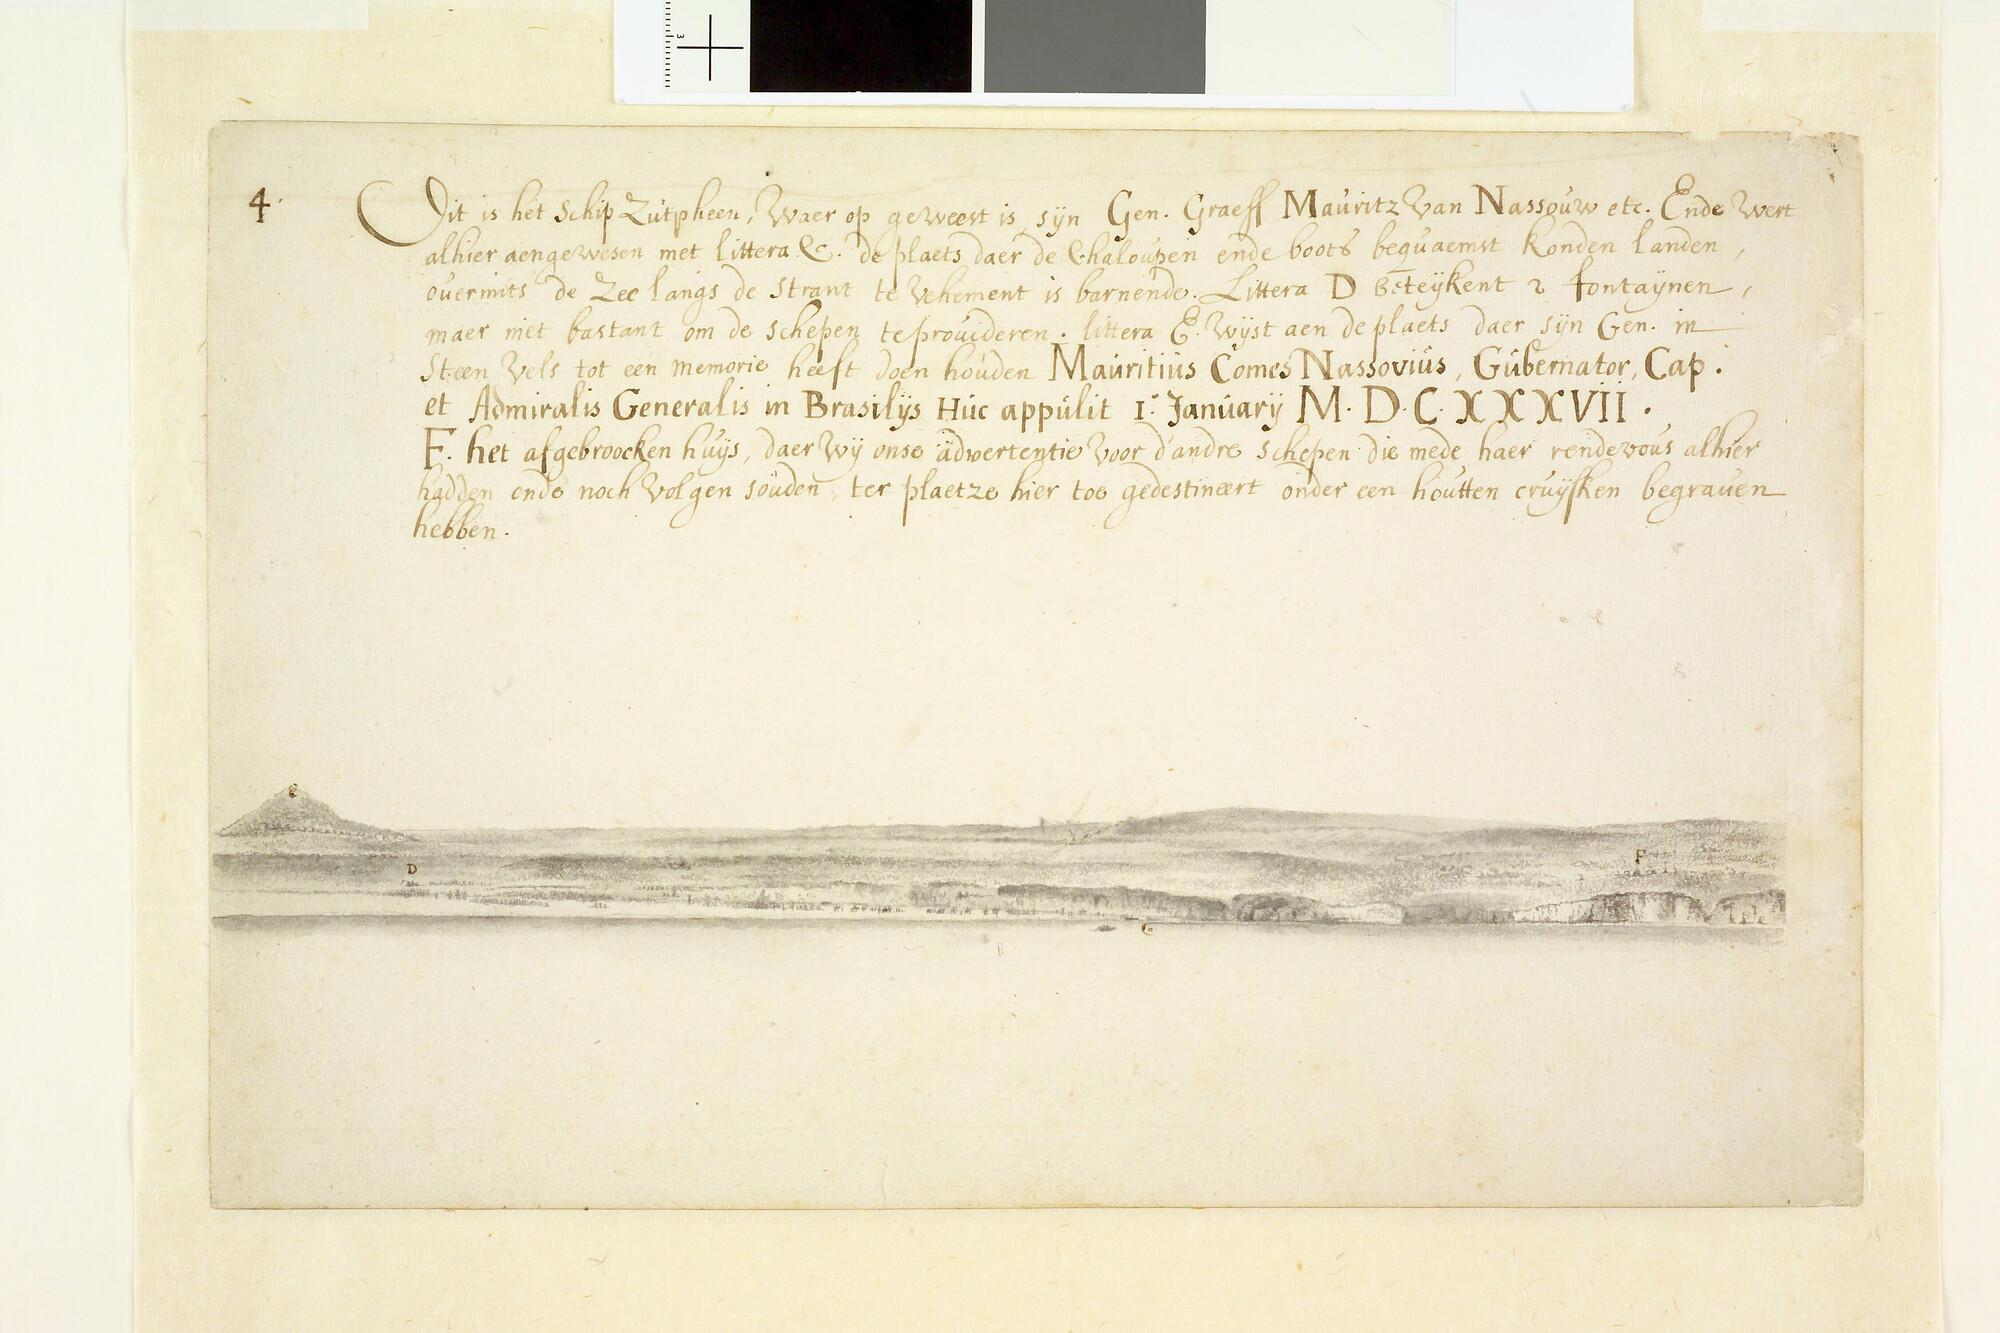 4.
Dit is het Schip Zutpheen, Waer op geweest is syn Gen. Graeff Mauritz Van Nassouw etc. Ende Wert
alhier aengewesen met littera C. de plaets daer de Chaloupen ende boots bequaemst konden landen,
overmits de Zee langs de Strant te Vehement is barnende. Littera D beteykent 2 fontaynen,
maer niet bastant om de schepen te provideren. littera E. Wyst aen de plaets daer syn Gen. in
Steen Vels tot een memorie heeft doen houden Mauritius Comes Nassovius, Gubernator, Cap.
et Admiralis Generalis in Brasilijs Huc appulit 1.º Januarij M.D.C.XXXVII.
F. het afgebroocken huys, daer Wy onse advertentie Voor d'andre schepen die mede haer rendevous alhier
hadden ende noch Volgen souden, ter plaetze hier toe gedestineert onder een houtten cruysken begraven
hebben.
E
D
F
C